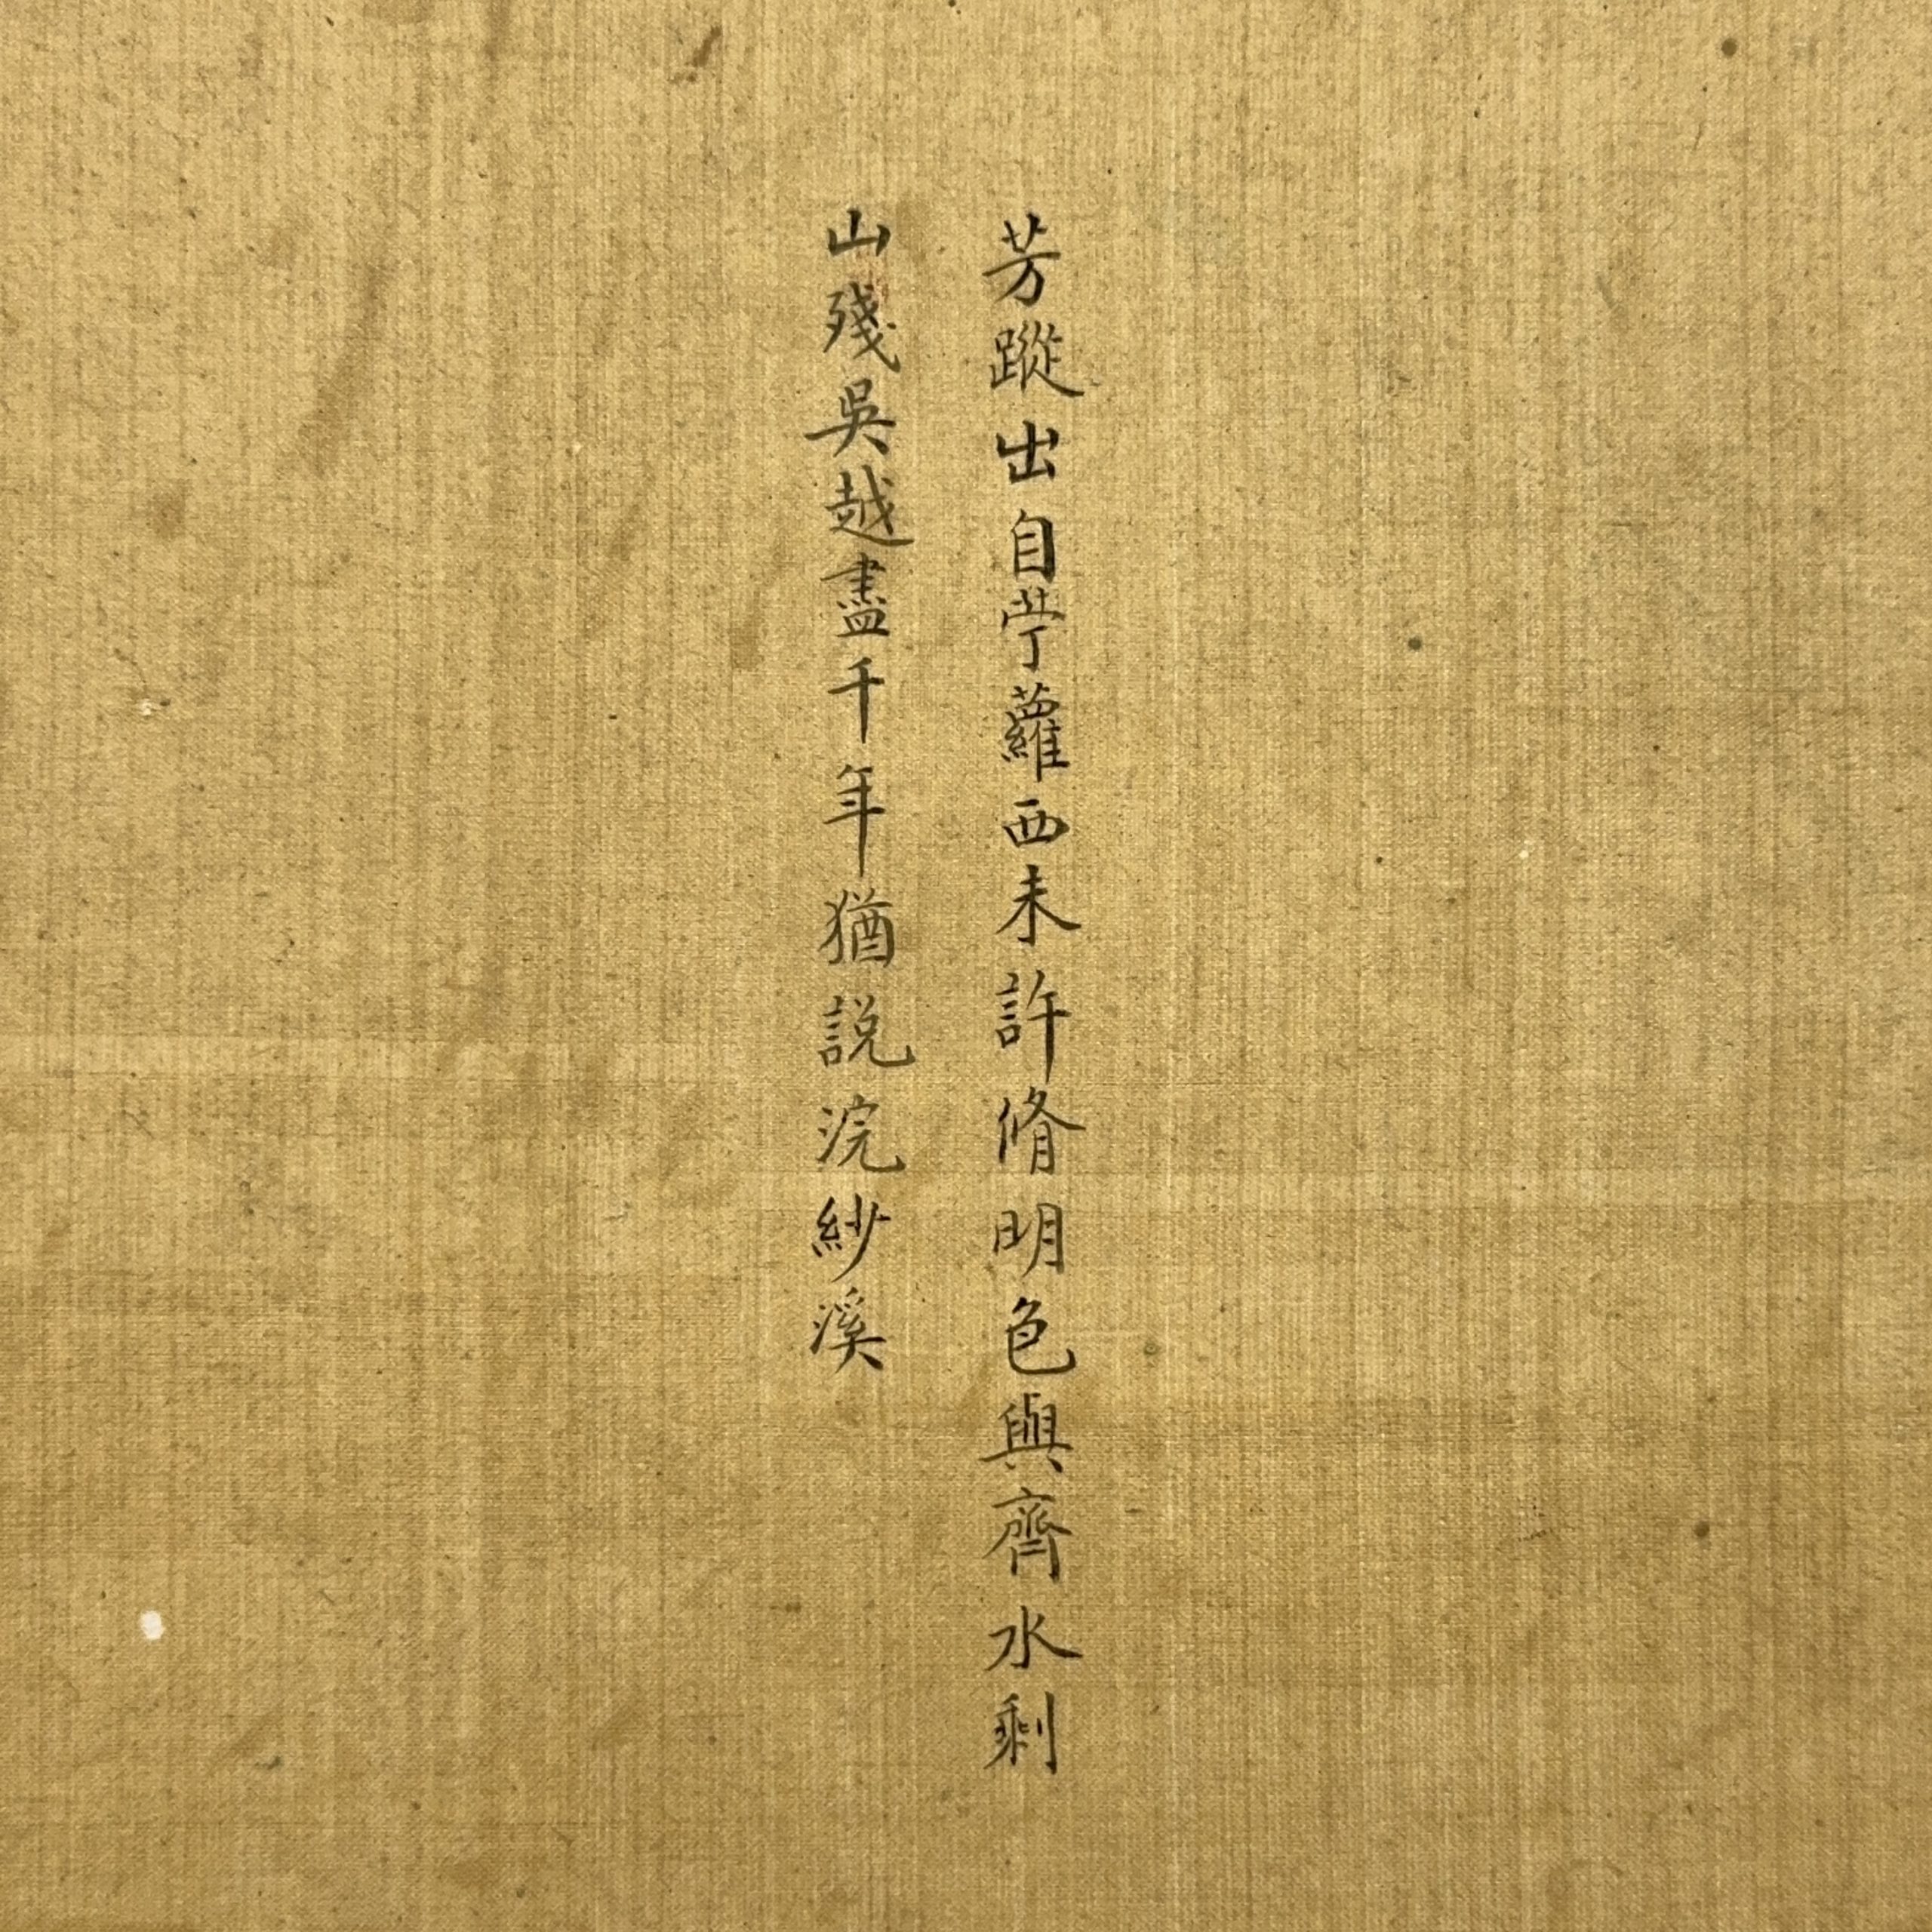 芳蹤出自苧蘿西未許脩明色與齊水剩
山殘吳越盡千年猶說浣紗溪